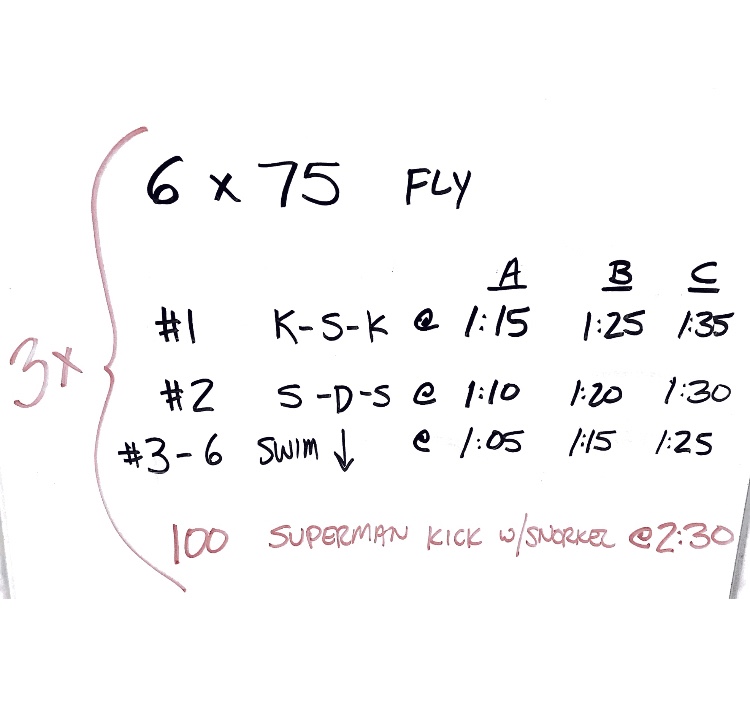 6 x 75 FLY
A B C
#1 K-S-K @ 1:15 1:25 1:35
#2 S-D-S @ 1:10 1:20 1:30
3x
#3-6 SWIM ↓ @ 1:05 1:15 1:25
100 SUPERMAN KICK w/SNORKEL @2:30